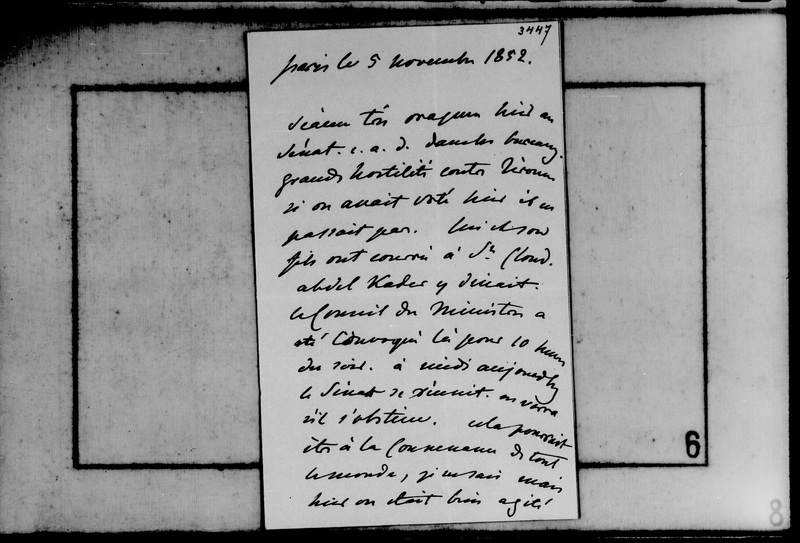 3447
Paris le 5 novembre 1852.
Séance très orageuse hier au
Sénat. c. a. d. dans les bureaux.
grande hostilité contre Jérome
si on avait voté hier il ne
passait pas. lui et son
fils ont couru à St Cloud.
abdel Kader y dinait.
le Conseil des Ministres a
été convoqué là pour 10 heures
du soir. à midi aujourd'hui
le Sénat se réunit. on verra
s'il s'obstine. cela pourrait
être à la convenance de tout
le monde, je ne sais mais
hier on était bien agité
6
8